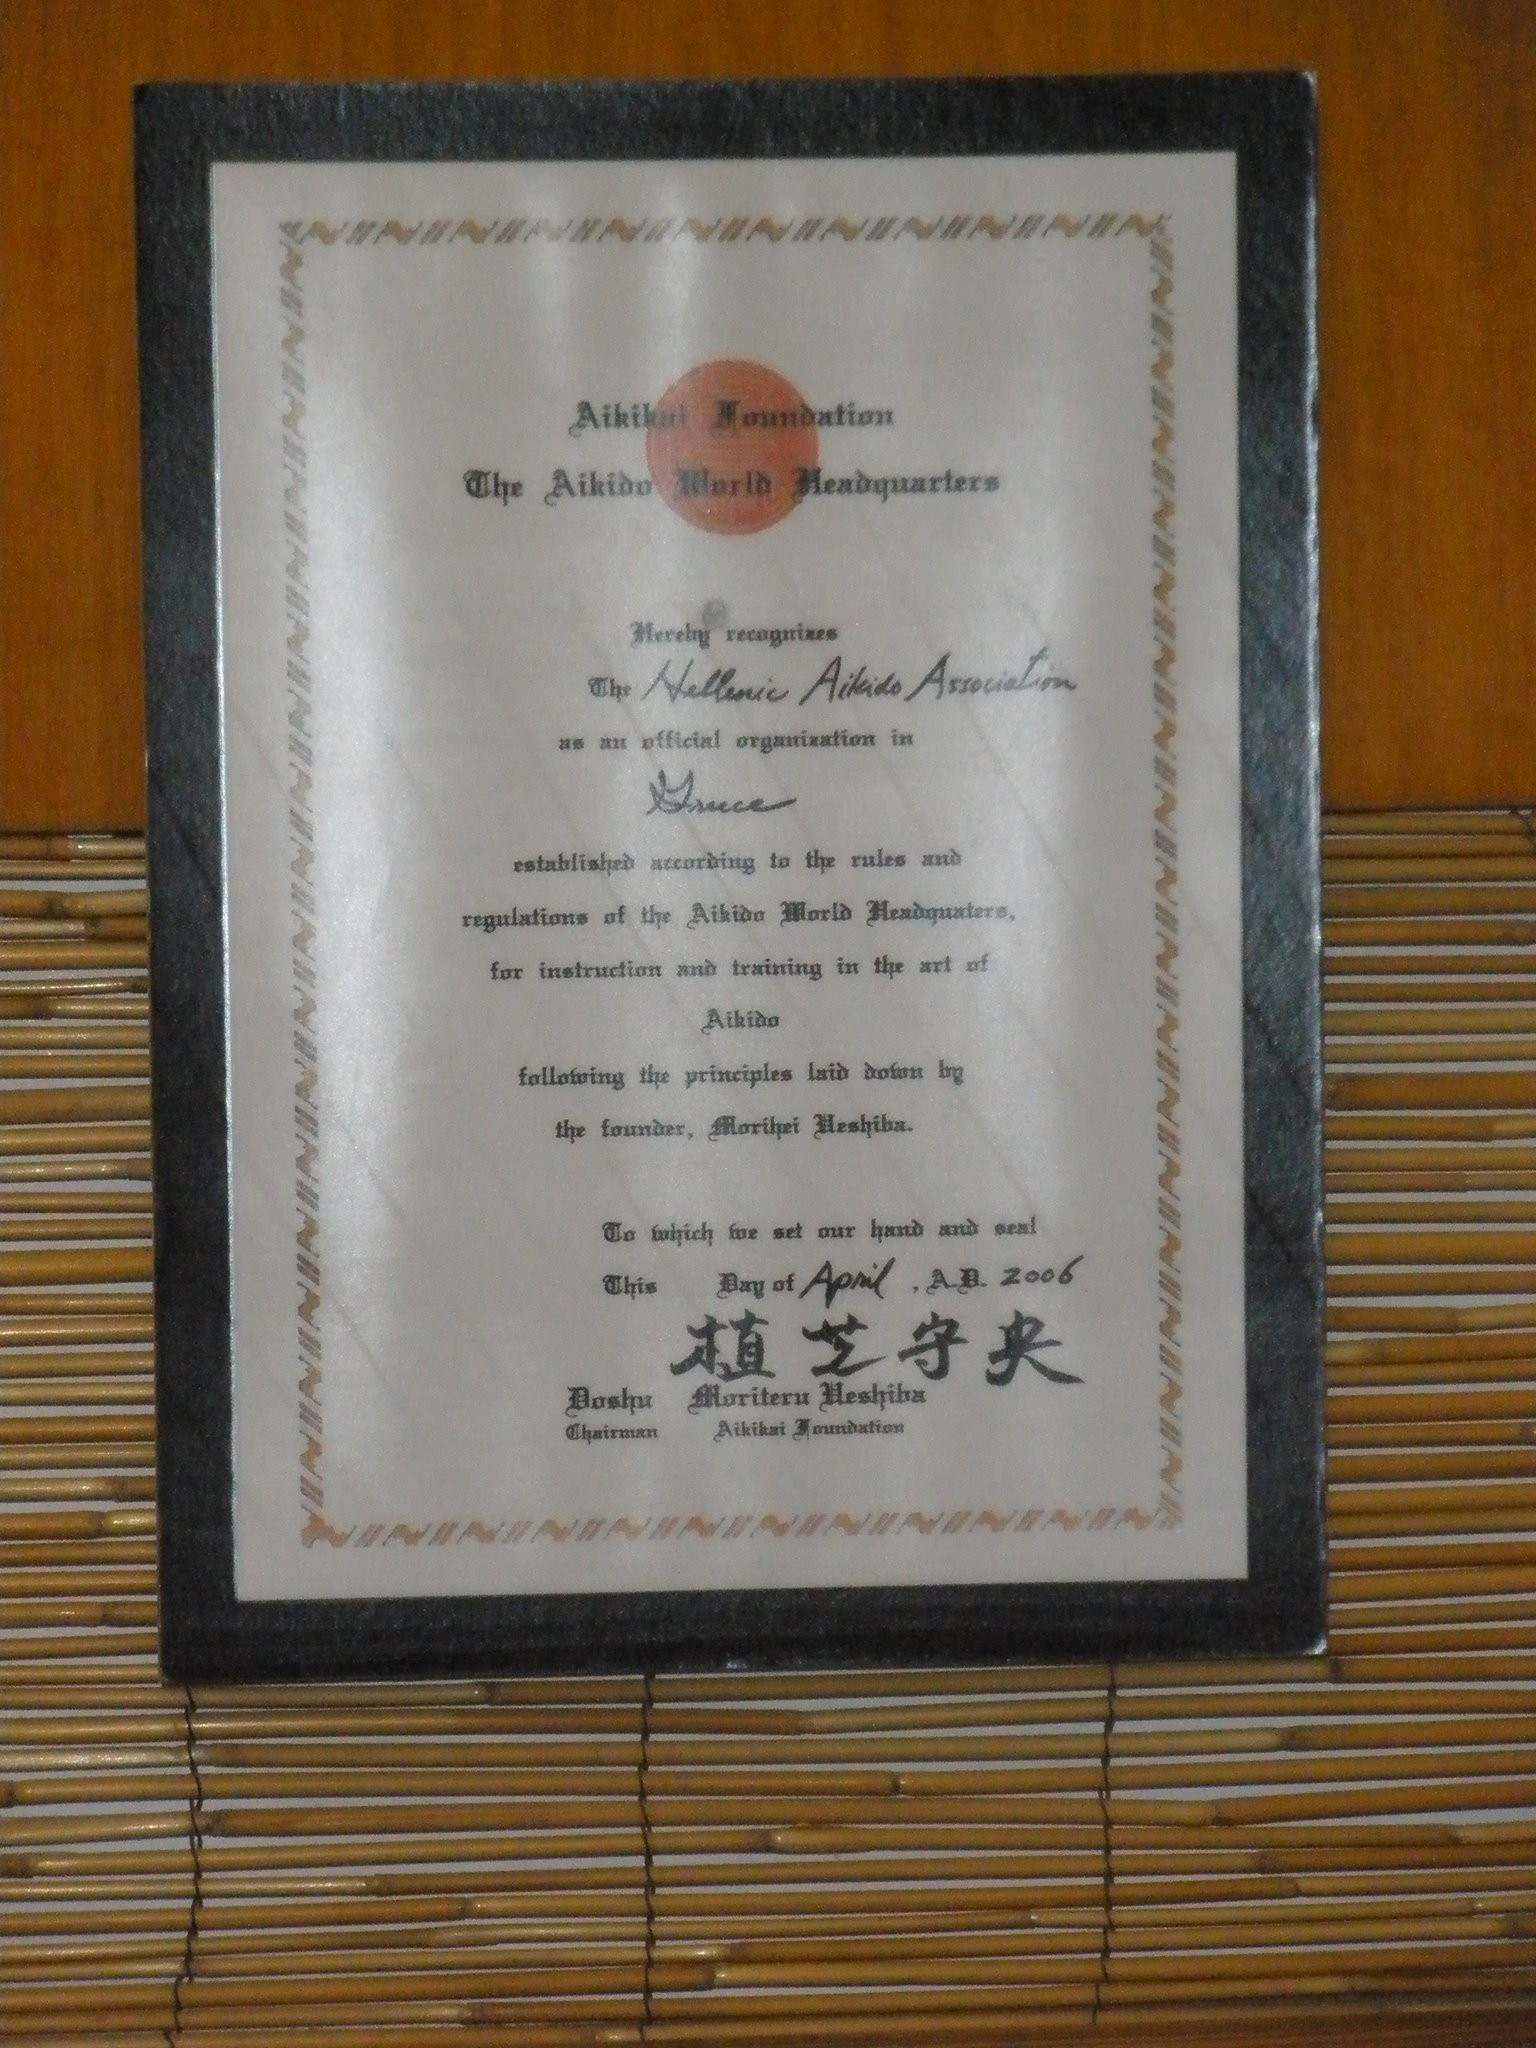 Aikikai Foundation
The Aikido World Headquarters
Hereby recognizes
The Hellenic Aikido Association
as an official organization in
Greece
established according to the rules and
regulations of the Aikido World Headquaters,
for instruction and training in the art of
Aikido
following the principles laid down by
the founder, Morihei Ueshiba.
To which we set our hand and seal
This Day of April , A.D. 2006
植芝守央
Doshu Moriteru Ueshiba
Chairman Aikikai Foundation